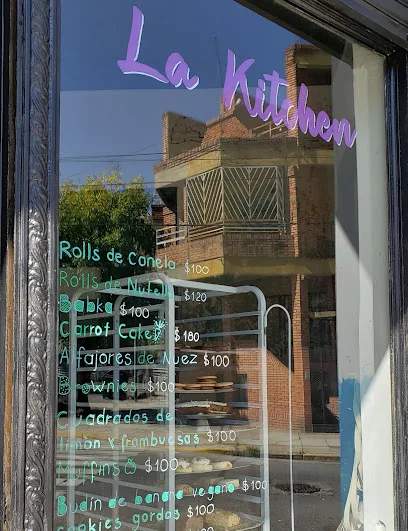 La Kitchen
Rolls de Canela $100
Rolls de Nutella $120
Babka $100
Carrot Cake $180
Alfajores de Nuez $100
Brownies $100
Cuadrados de
limón y frambuesas $100
Muffins $100
Budin de banana vegano $100
cookies gordas $100